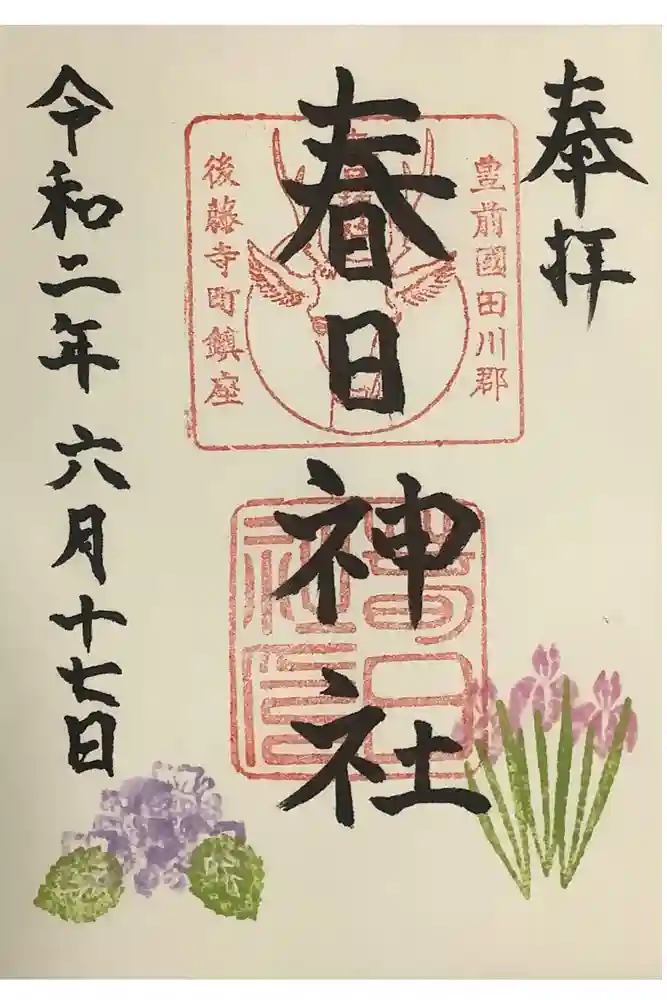 奉拝
豊前國田川郡
春日神社
後藤寺町鎮座
春日
社印
令和二年六月十七日